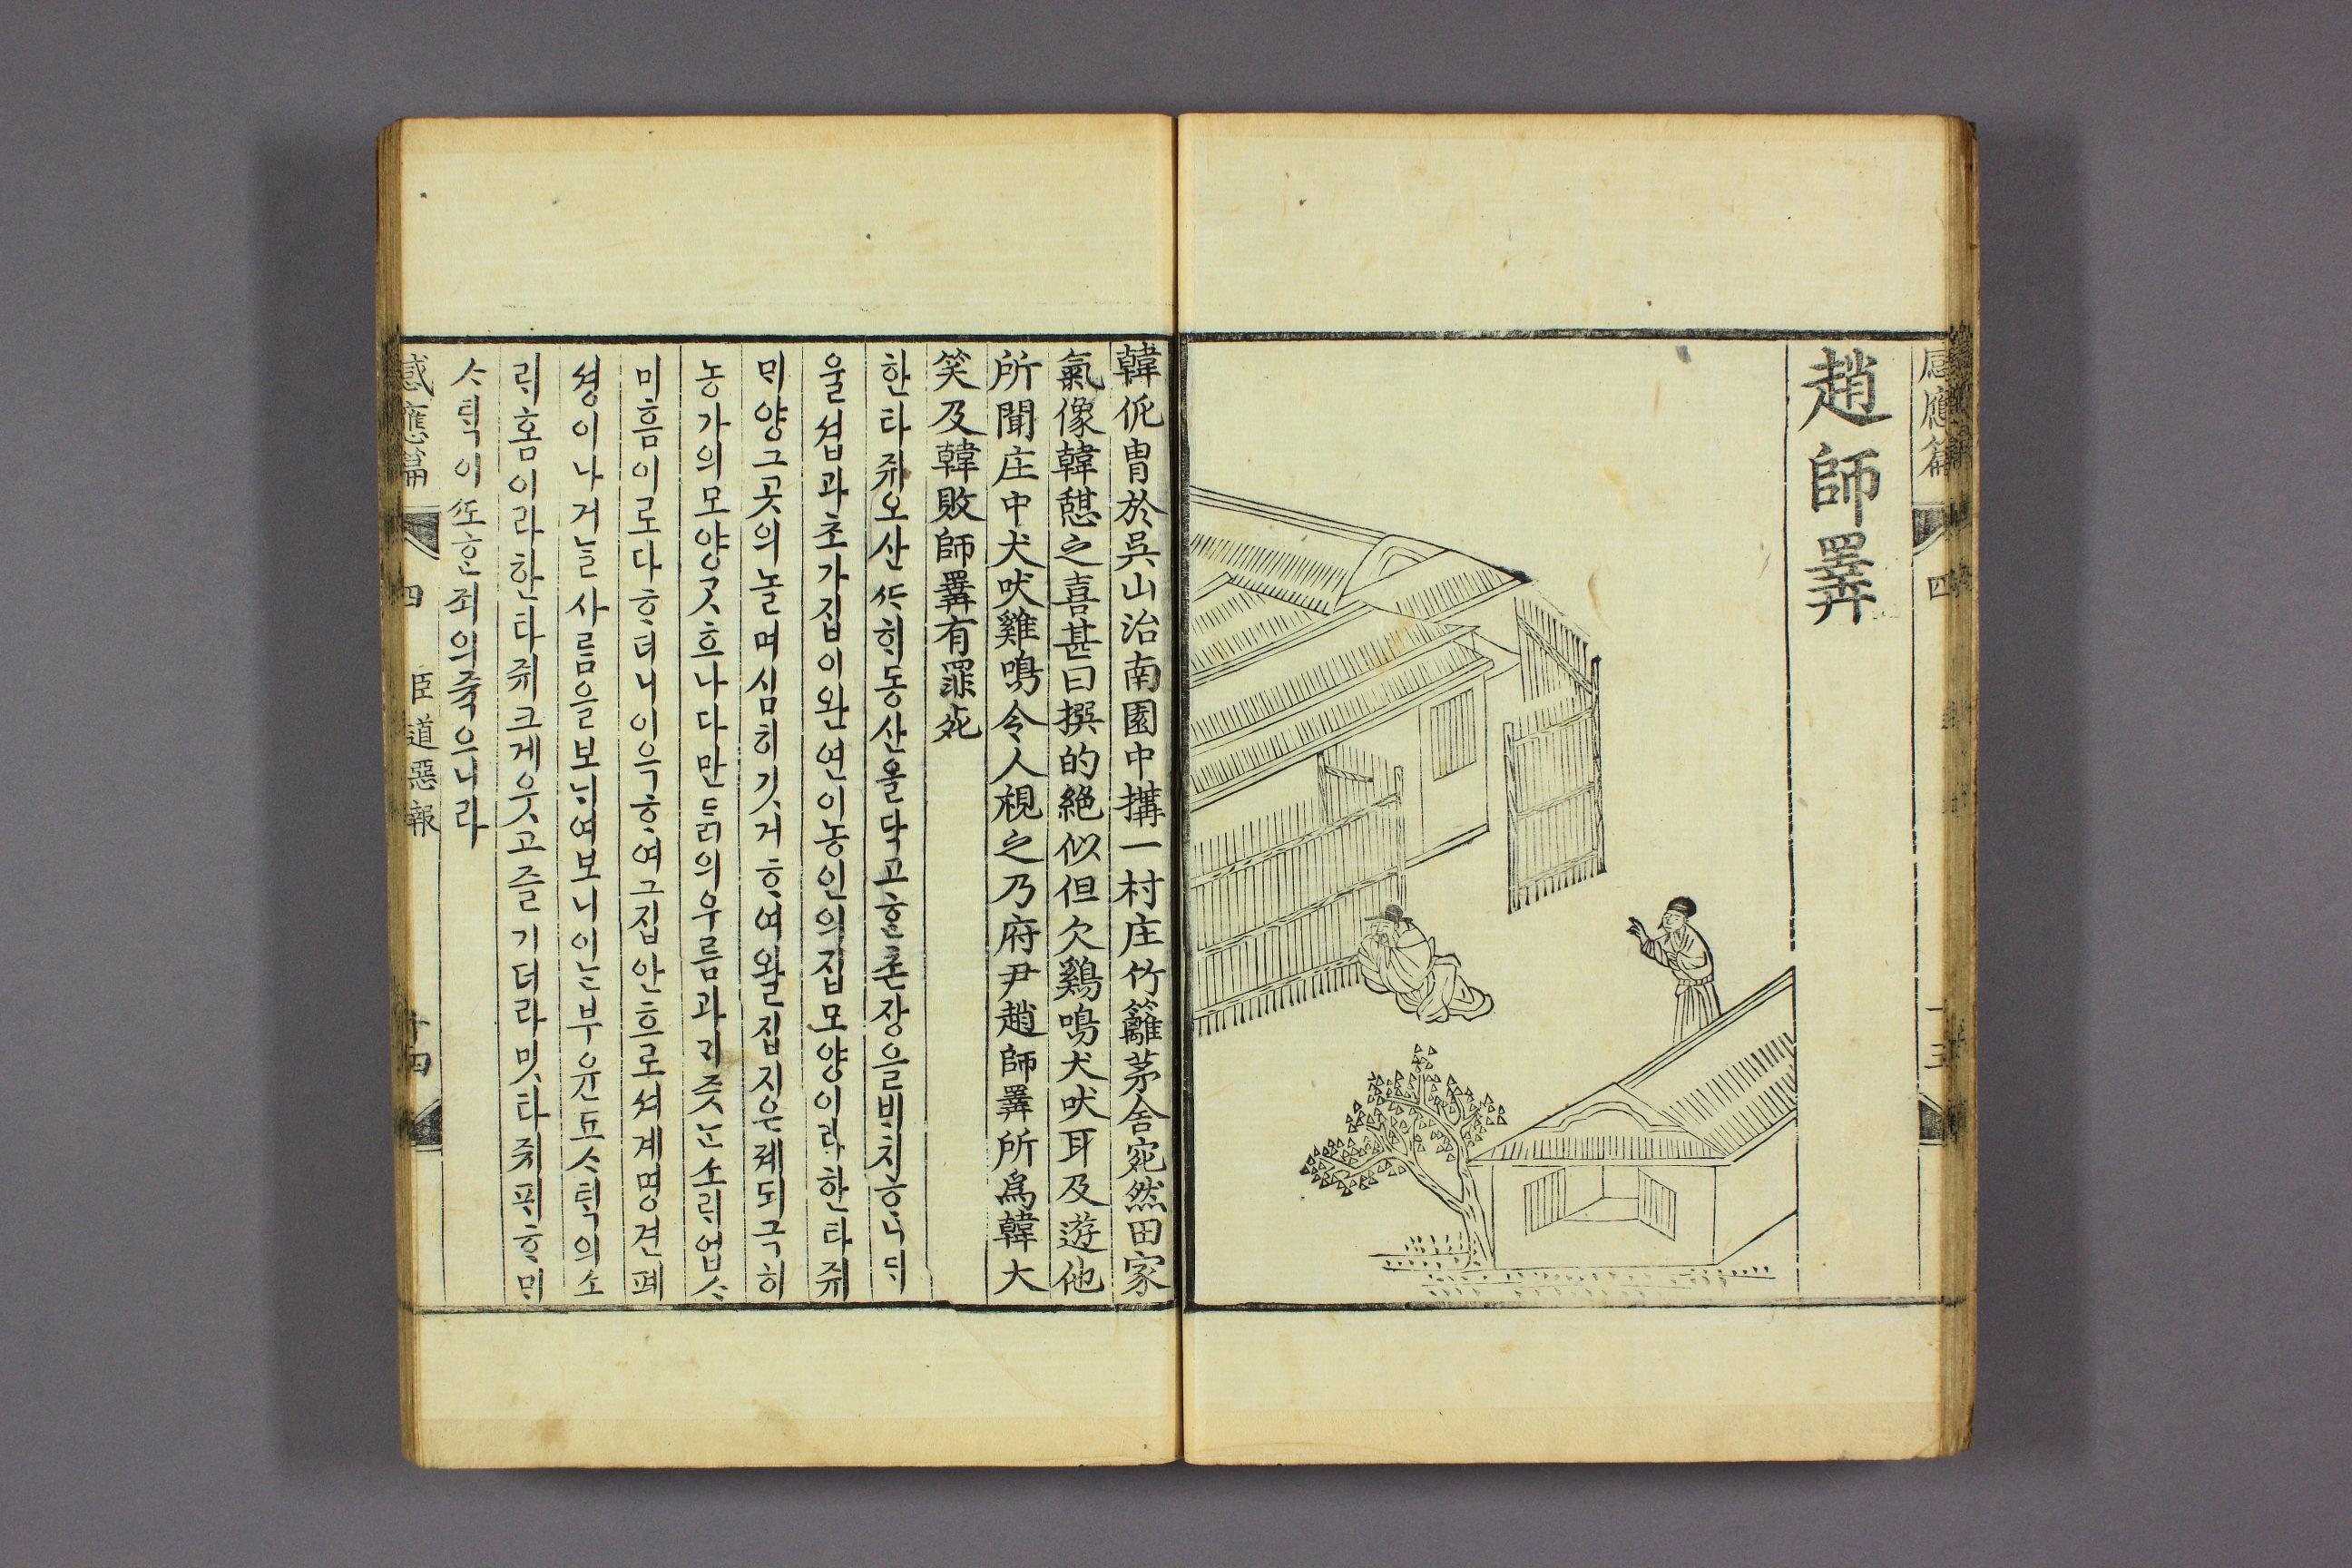 感應篇 四
趙師羼
韓侂冑於吳山治南園中搆一村庄竹籬茅舍宛然田家
氣像韓憇之喜甚曰撰的絶似但欠鷄鳴犬吠耳及遊他
所聞庄中犬吠雞鳴令人視之乃府尹趙師羼所爲韓大
笑及韓敗師羼有罪死
한탁쥐오산ᄯᅡᄒᆡ동산을닥고ᄒᆞᆫ촌장을ᄇᆡ치ᄒᆞ니ᄃᆡ
울섭과초가집이완연이농인의집모양이라한탁쥐
ᄆᆡ양그곳의놀며심히깃거ᄒᆞ여왈집지은졔되극히
농가의모양ᄀᆞᆺ흐나다만ᄃᆞᆰ의우름과ᄀᆡ즛ᄂᆞᆫ소ᄅᆡ업ᄉᆞ
미흠이로다ᄒᆞ더니이윽ᄒᆞ여그집안흐로셔계명견폐
셩이나거ᄂᆞᆯ사ᄅᆞᆷ을보ᄂᆡ여보니이ᄂᆞᆫ부윤됴ᄉᆞᄐᆡᆨ의소
ᄅᆡ홈이라한탁쥐크게웃고즐기더라밋탁쥐ᄑᆡᄒᆞᄆᆡ
ᄉᆞᄐᆡᆨ이ᄯᅩᄒᆞᆫ죄의죽으니라
感應篇 四 臣道惡報 十四